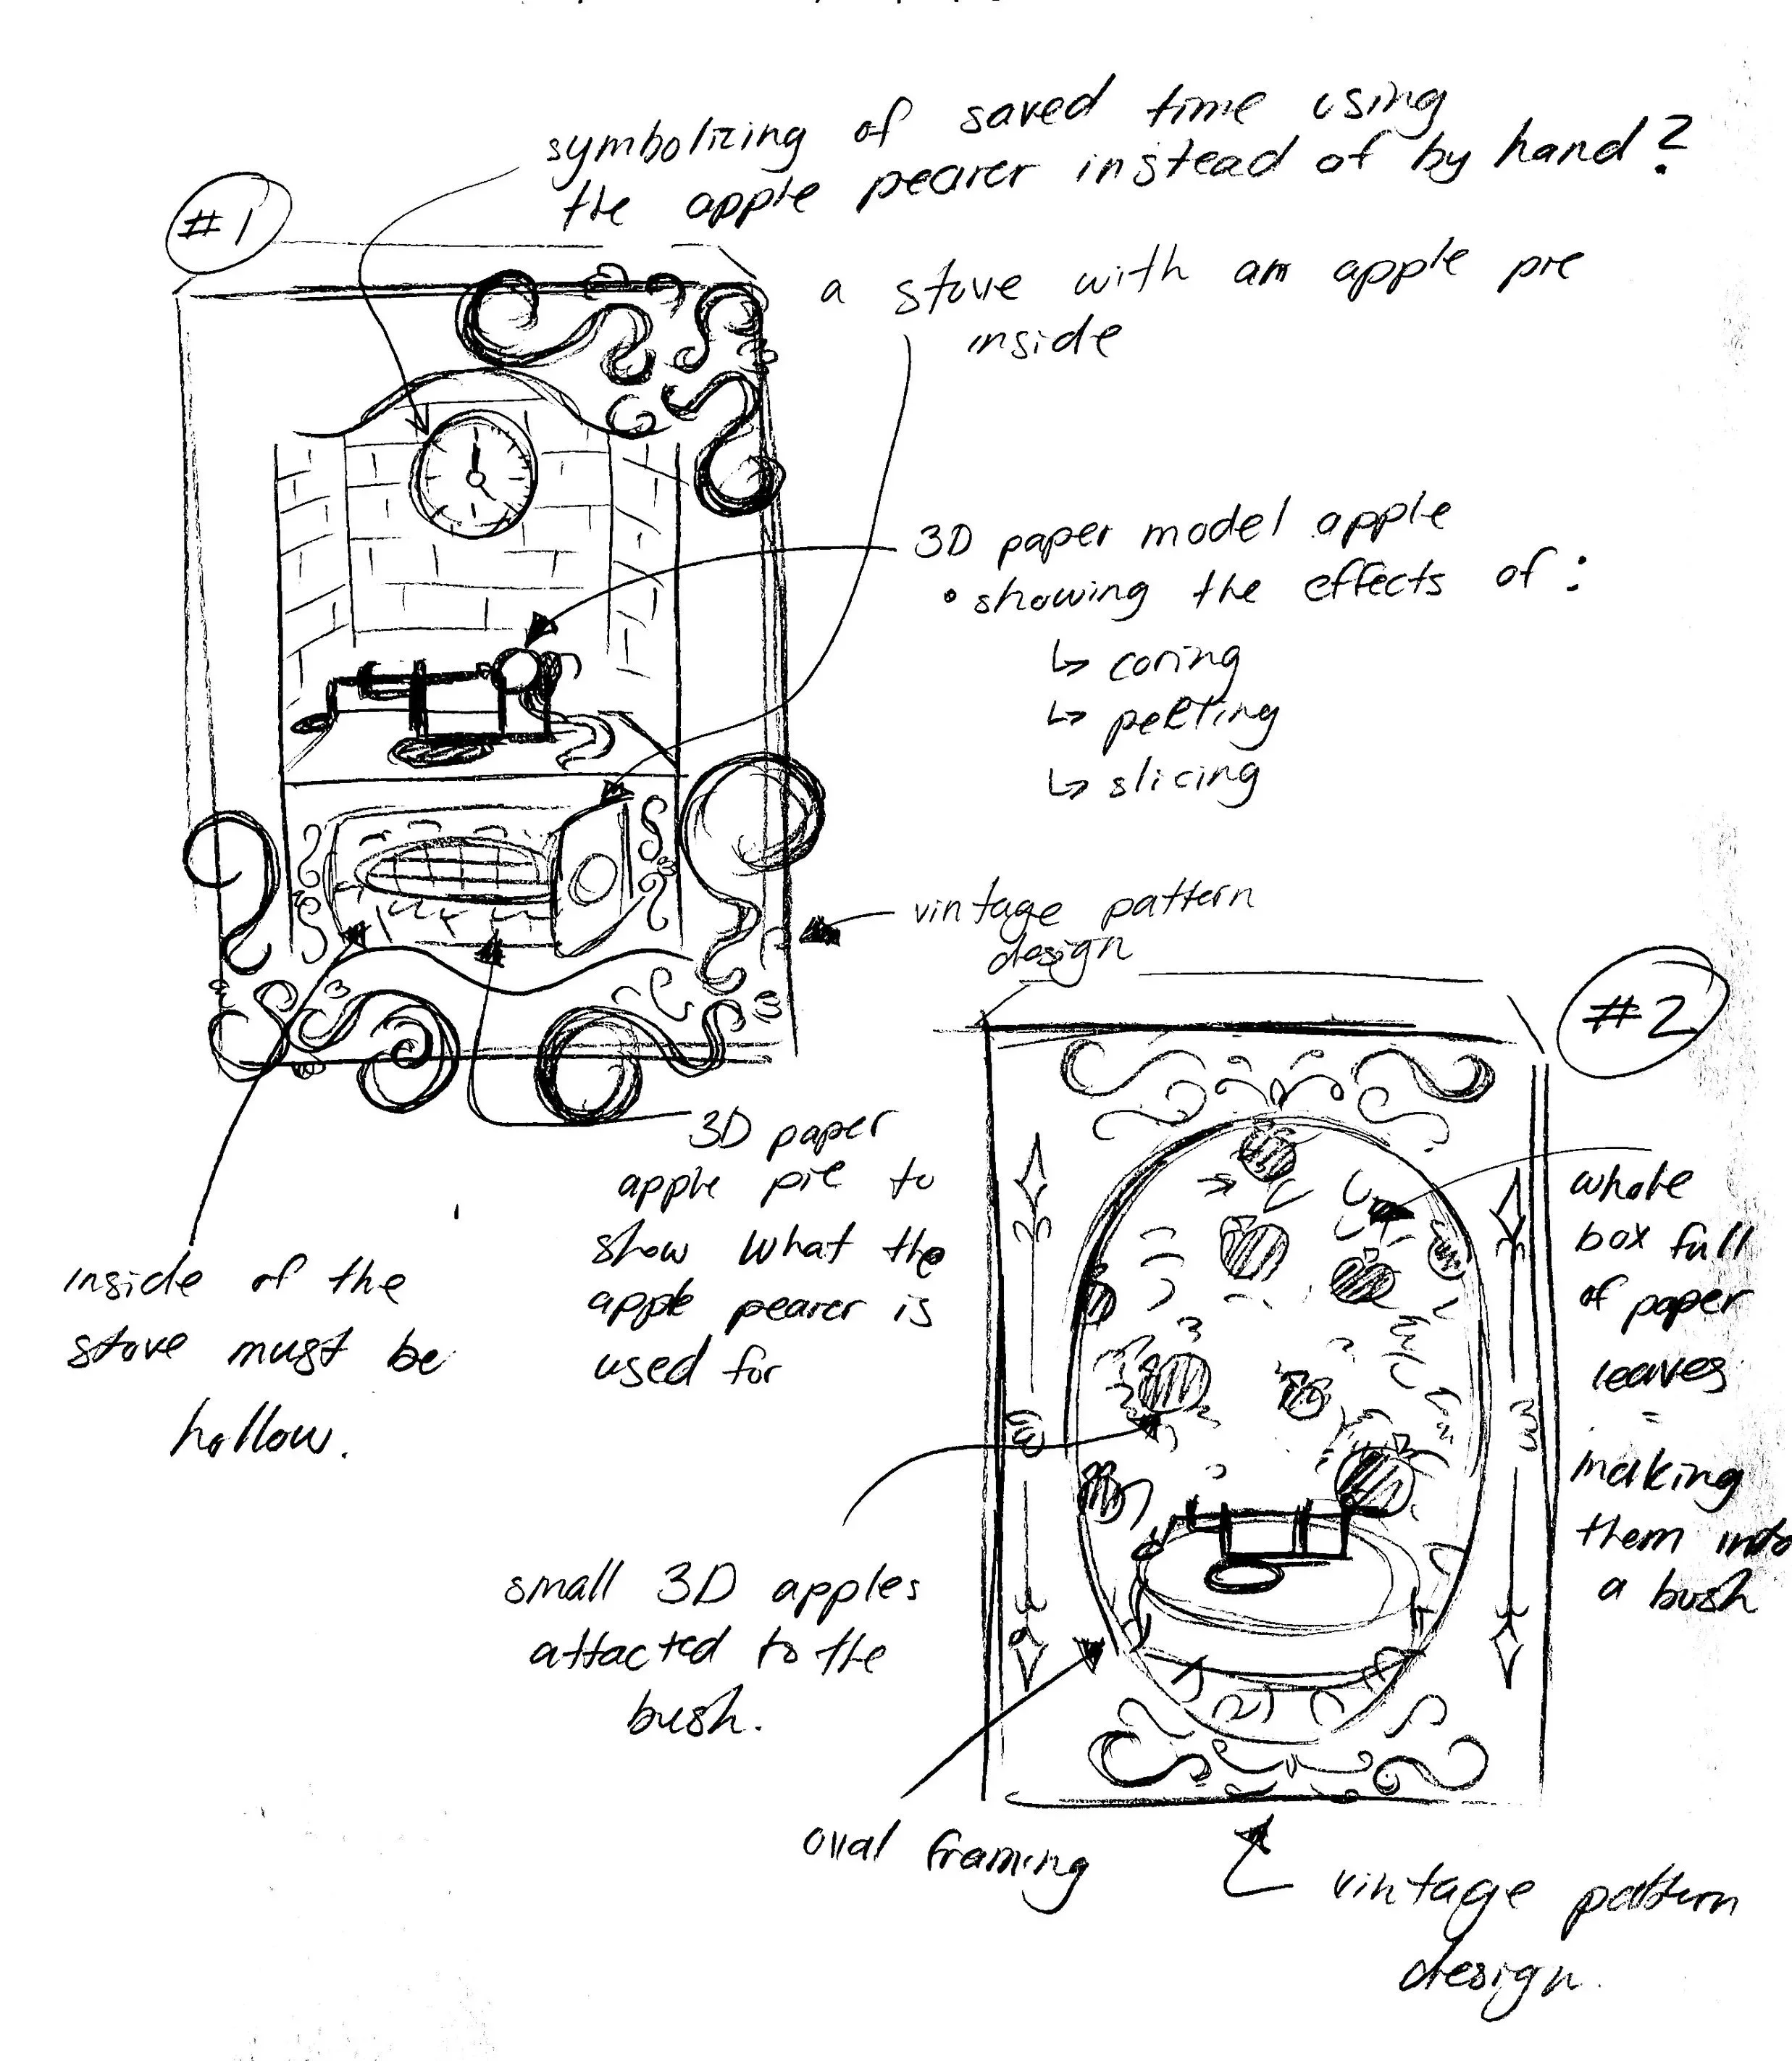 symbolizing of saved time using
the apple pearer instead of by hand?
#1
a stove with an apple pie
inside
3D paper model apple
• showing the effects of :
↳ coring
↳ peeling
↳ slicing
vintage pattern
design
#2
3D paper
apple pie to
show what the
apple pearer is
used for
inside of the
stove must be
hollow.
whole
box full
of paper
leaves
=
making
them into
a bush
small 3D apples
attacted to the
bush.
oval framing
vintage pattern
design.